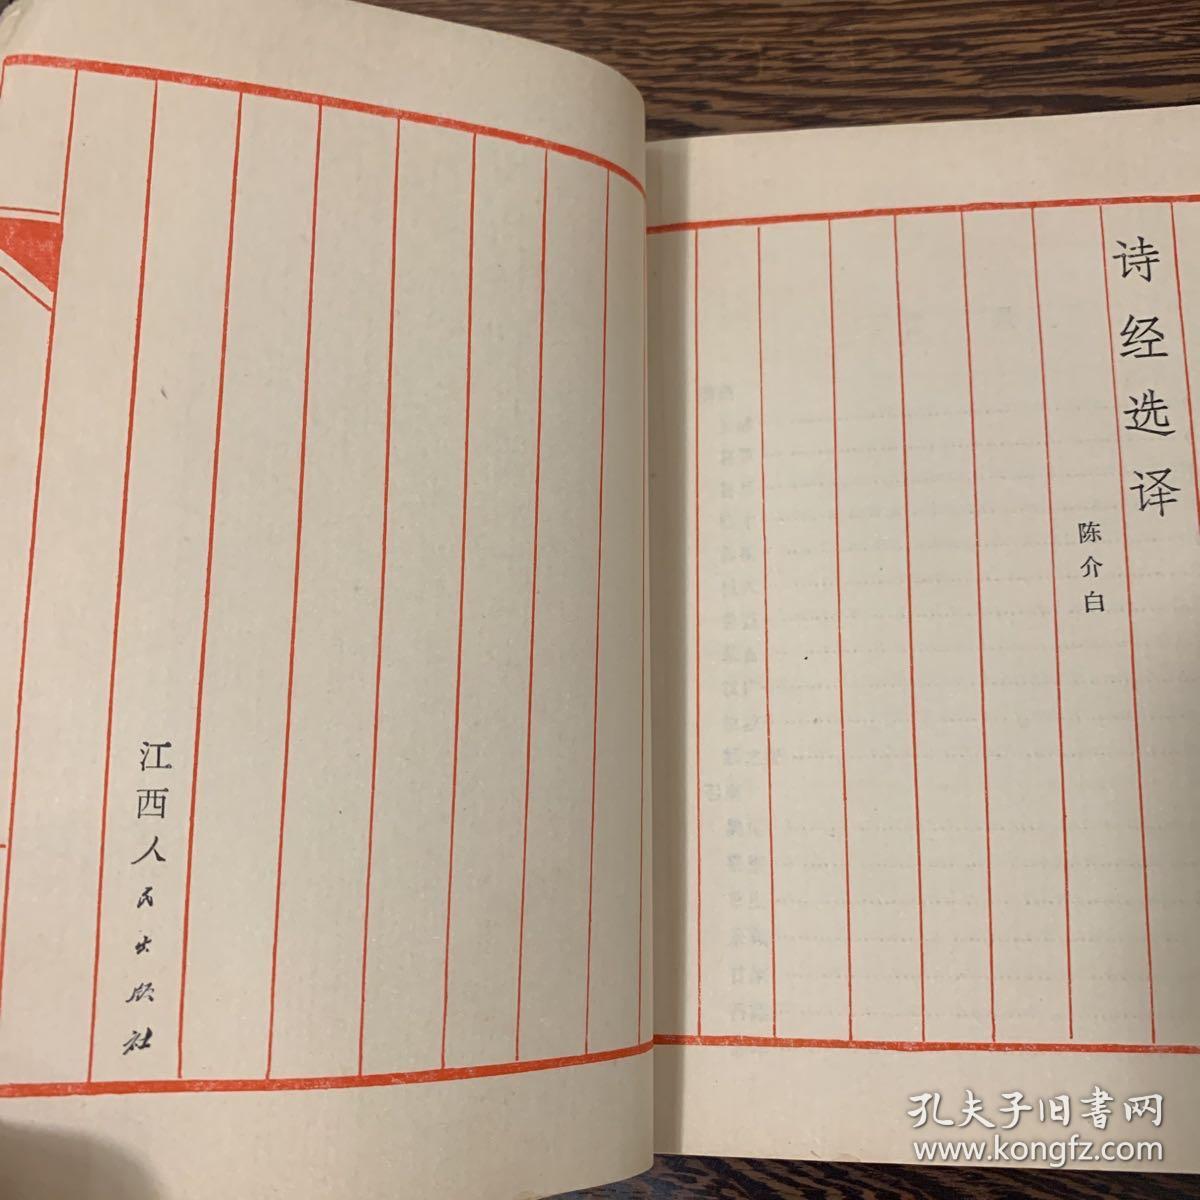 诗经选译
陈介白
江西人民出版社
孔夫子旧书网
www.kongfz.com